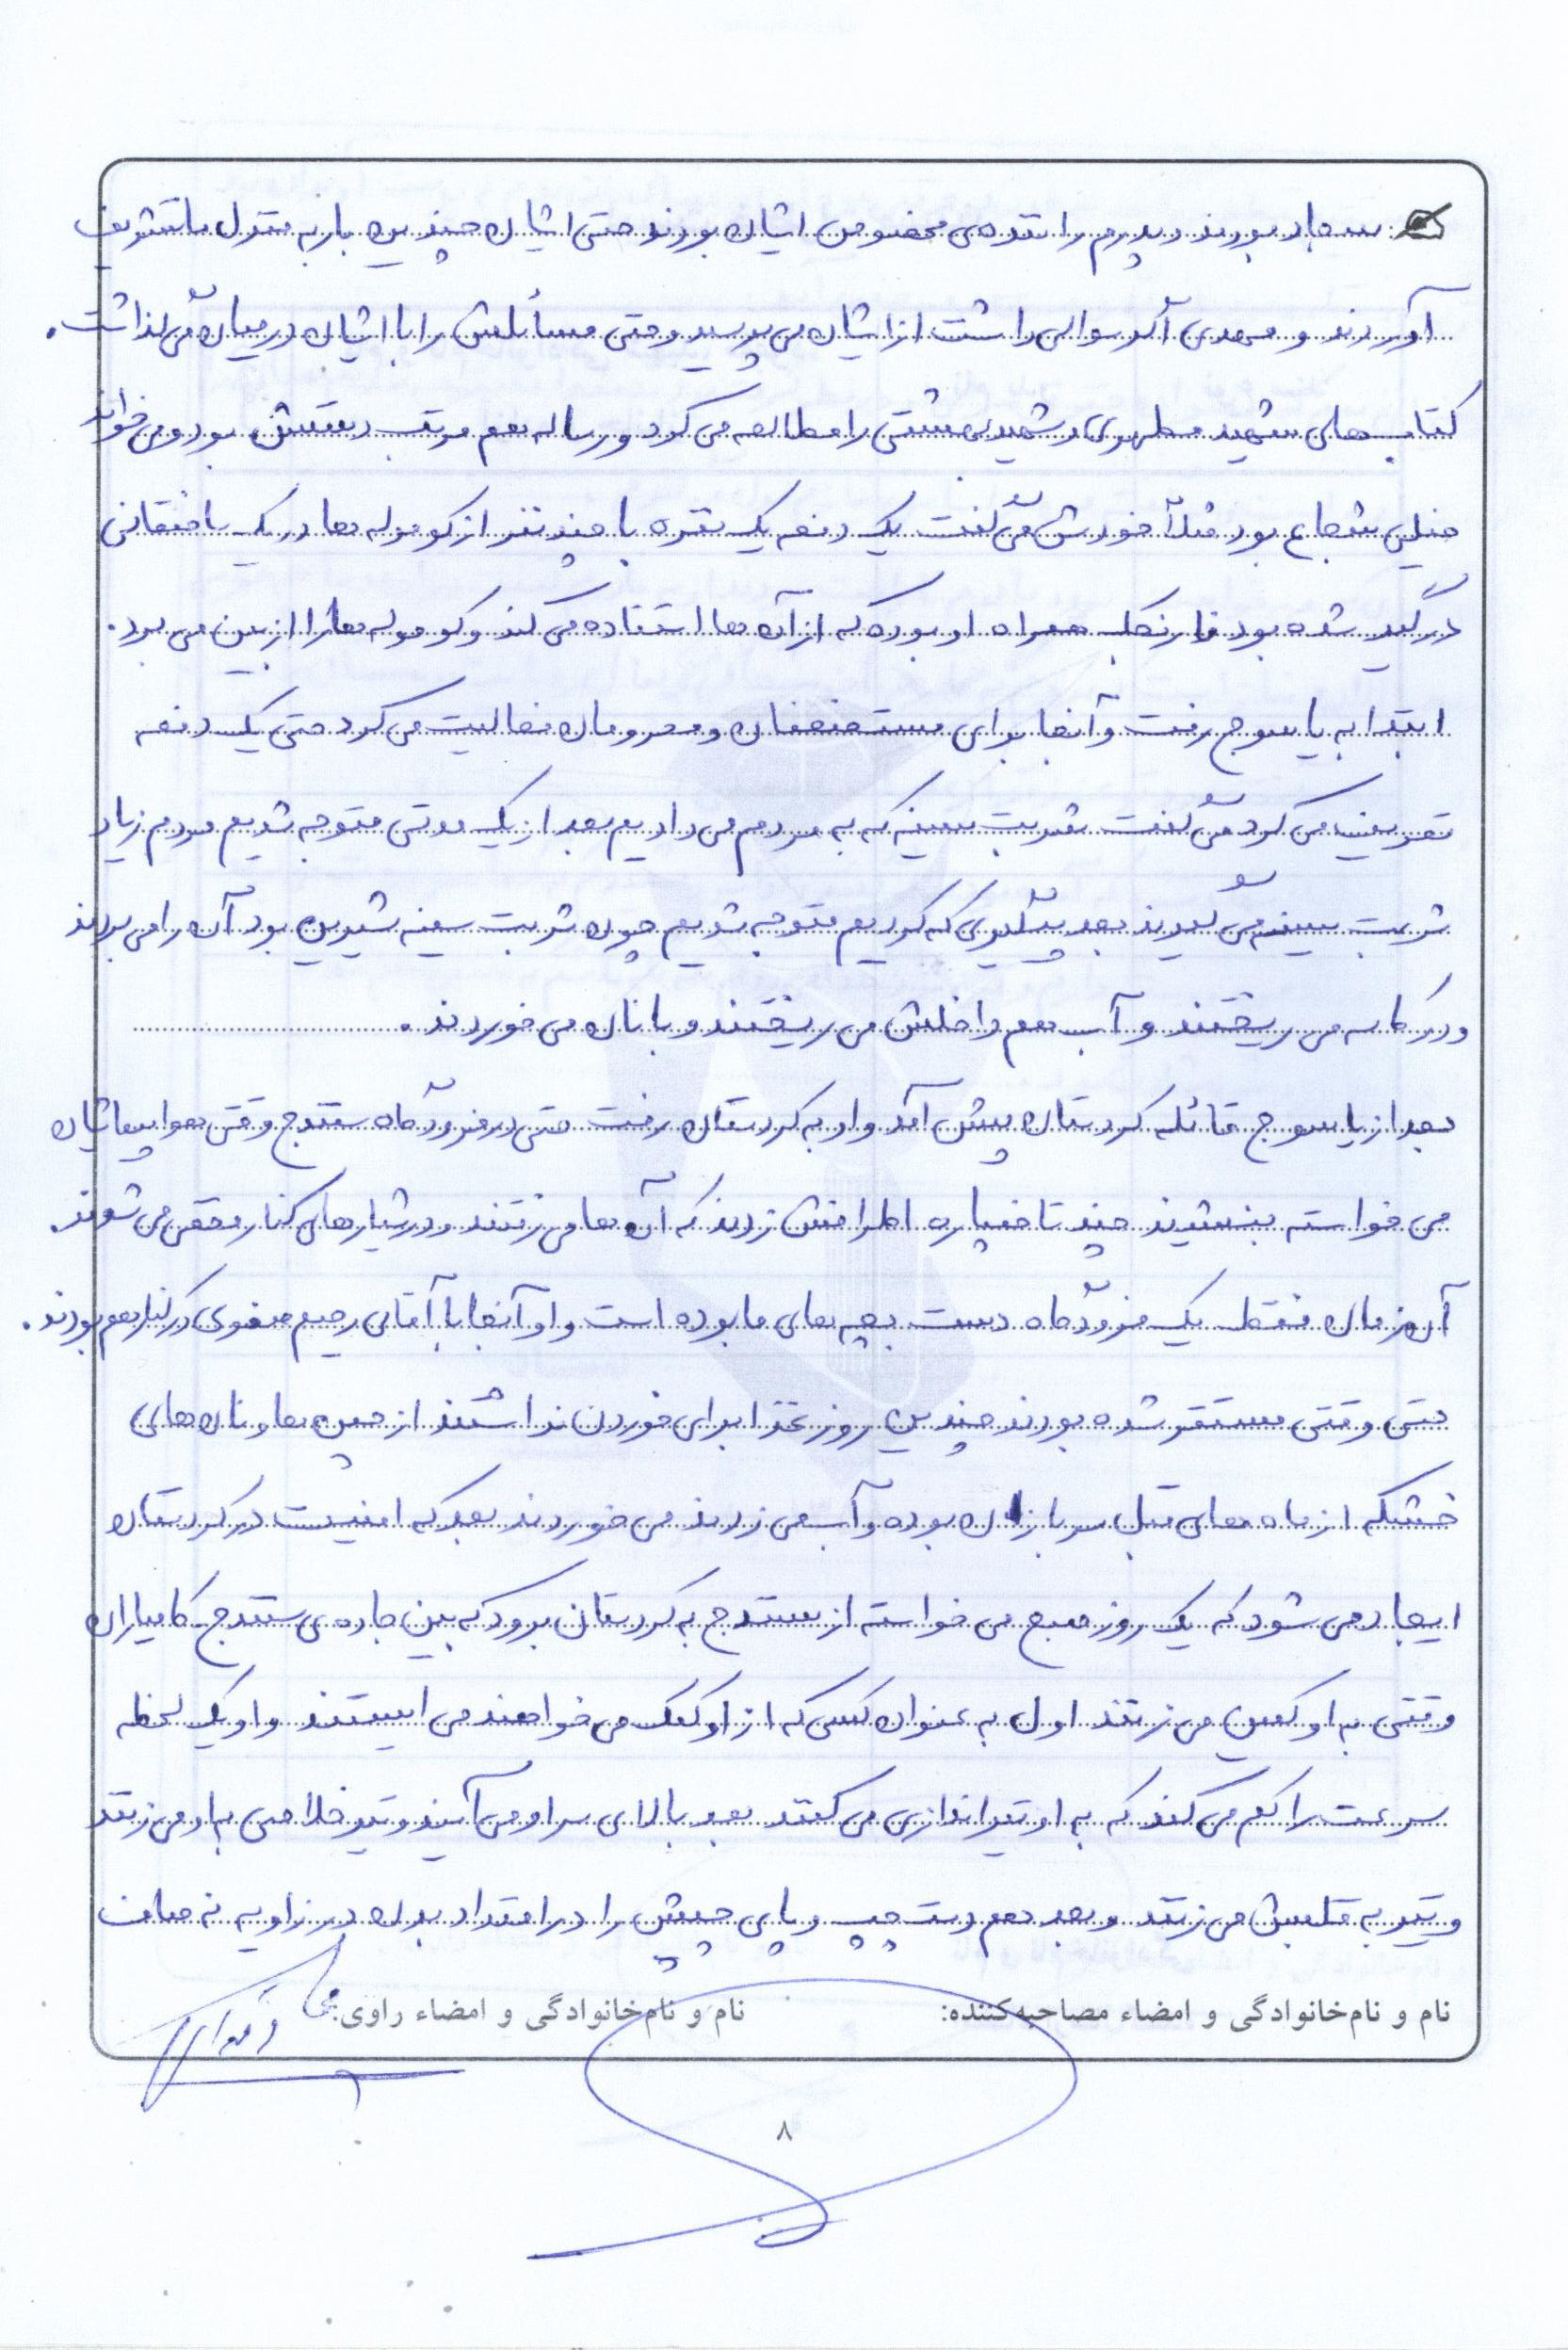 سجاد بودند و پدرم راننده‌ی مخصوص ایشان بودند حتی ایشان چندین بار به منزل ما تشریف
آوردند و مهدی اگر سوالی داشت از ایشان می پرسید و حتی مسائلش را با ایشان در میان می گذاشت.
کتاب های شهید مطهری و شهید بهشتی را مطالعه می کرد و رساله هم مرتب دستش بود و می خواند
خیلی شجاع بود مثلاً خودش می گفت یک دفعه یک نفره با چند نفر از کومولە ها در یک باغقانی
درگیر شده بود نارنجک همراه او بوده که از آن ها استفاده می کند و کومولە ها را از بین می برد.
ابتدا به یاسوج رفت و آنجا برای مستضعفان و محرومان فعالیت می کرد حتی یک دفعه
تعریف می کرد می گفت شربت سینه که به مردم می دادیم بعد از یک مدتی متوجه شدیم مردم زیاد
شربت سینه می گیرند بعد پیگیری که کردیم متوجه شدیم چون شربت سینه شیرین بود آن را می بردند
و در کاسه می ریختند و آب هم داخلش می ریختند و با نان می خوردند.
بعد از یاسوج قائله کردستان پیش آمد و او به کردستان رفت حتی در فرودگاه سنندج وقتی هواپیماشان
می خواسته بنشیند چند تا خمپاره اطرافش زدند که آن ها می زنند و در شیارهای کنار مخفی می شوند.
آن زمان فقط یک فرودگاه دست بچه های ما بوده است و او آنجا با آقای رحیم صفوی در کنار هم بودند.
حتی وقتی مستقر شده بودند چندین روز غذا برای خوردن نداشتند از جیره ها و نان های
خشکه از ماه های قبل سربازان بوده و آب می زدند می خوردند بعد که امنیت در کردستان
ایجاد می شود که یک روز صبح می خواسته از سنندج به کردستان برود که بین جاده ی سنندج - کامیاران
وقتی به او کمین می زنند اول به عنوان کسی که از او کمک می خواهند می ایستند و او یک لحظه
سرعت را کم می کند که به او تیراندازی می کنند بعد بالای سر او می آیند و تیر خلاصی به او می زنند
و تیر به قلبش می زنند و بعد هم دست چپ و پای چپش را در امتداد بدن در زاویه نه صاف
نام و نام‌خانوادگی و امضاء مصاحبه‌کننده: نام و نام‌خانوادگی و امضاء راوی:
۸